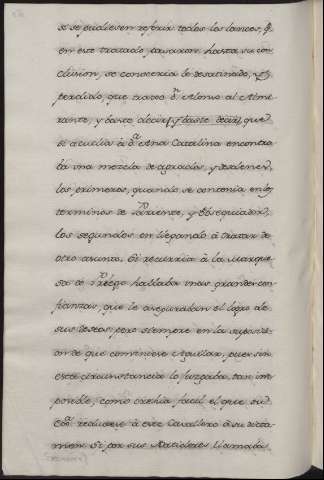 se se pudiesen referir todos los lances, q.
en este tratado pasaron, hasta su con
clusion, se conoceria lo desatinado, y
perdido, que traxo Dn Alonso al Almi
rante, y baste decir (y baste decir) que
si acudia à Da Ana Catalina encontra
ba una mezcla de agrados, y desdenes,
los primeros, quando se contenia en los
terminos de Pariente, y Obsequiador,
los segundos en llegando à tratar de
otro asunto. Si recurria à la Marque
sa de Priego hallaba mas grandes con
fianzas, que le aseguraban el logro de
sus deseos pero siempre en la suposici
on de que conviniese Aguilar, pues sin
esta circunstancia lo juzgaba tan im
posible, como crehia facil el que su
Exa reduxese à este Cavallero à su dicta
men. Si por sus Parciales llamaba